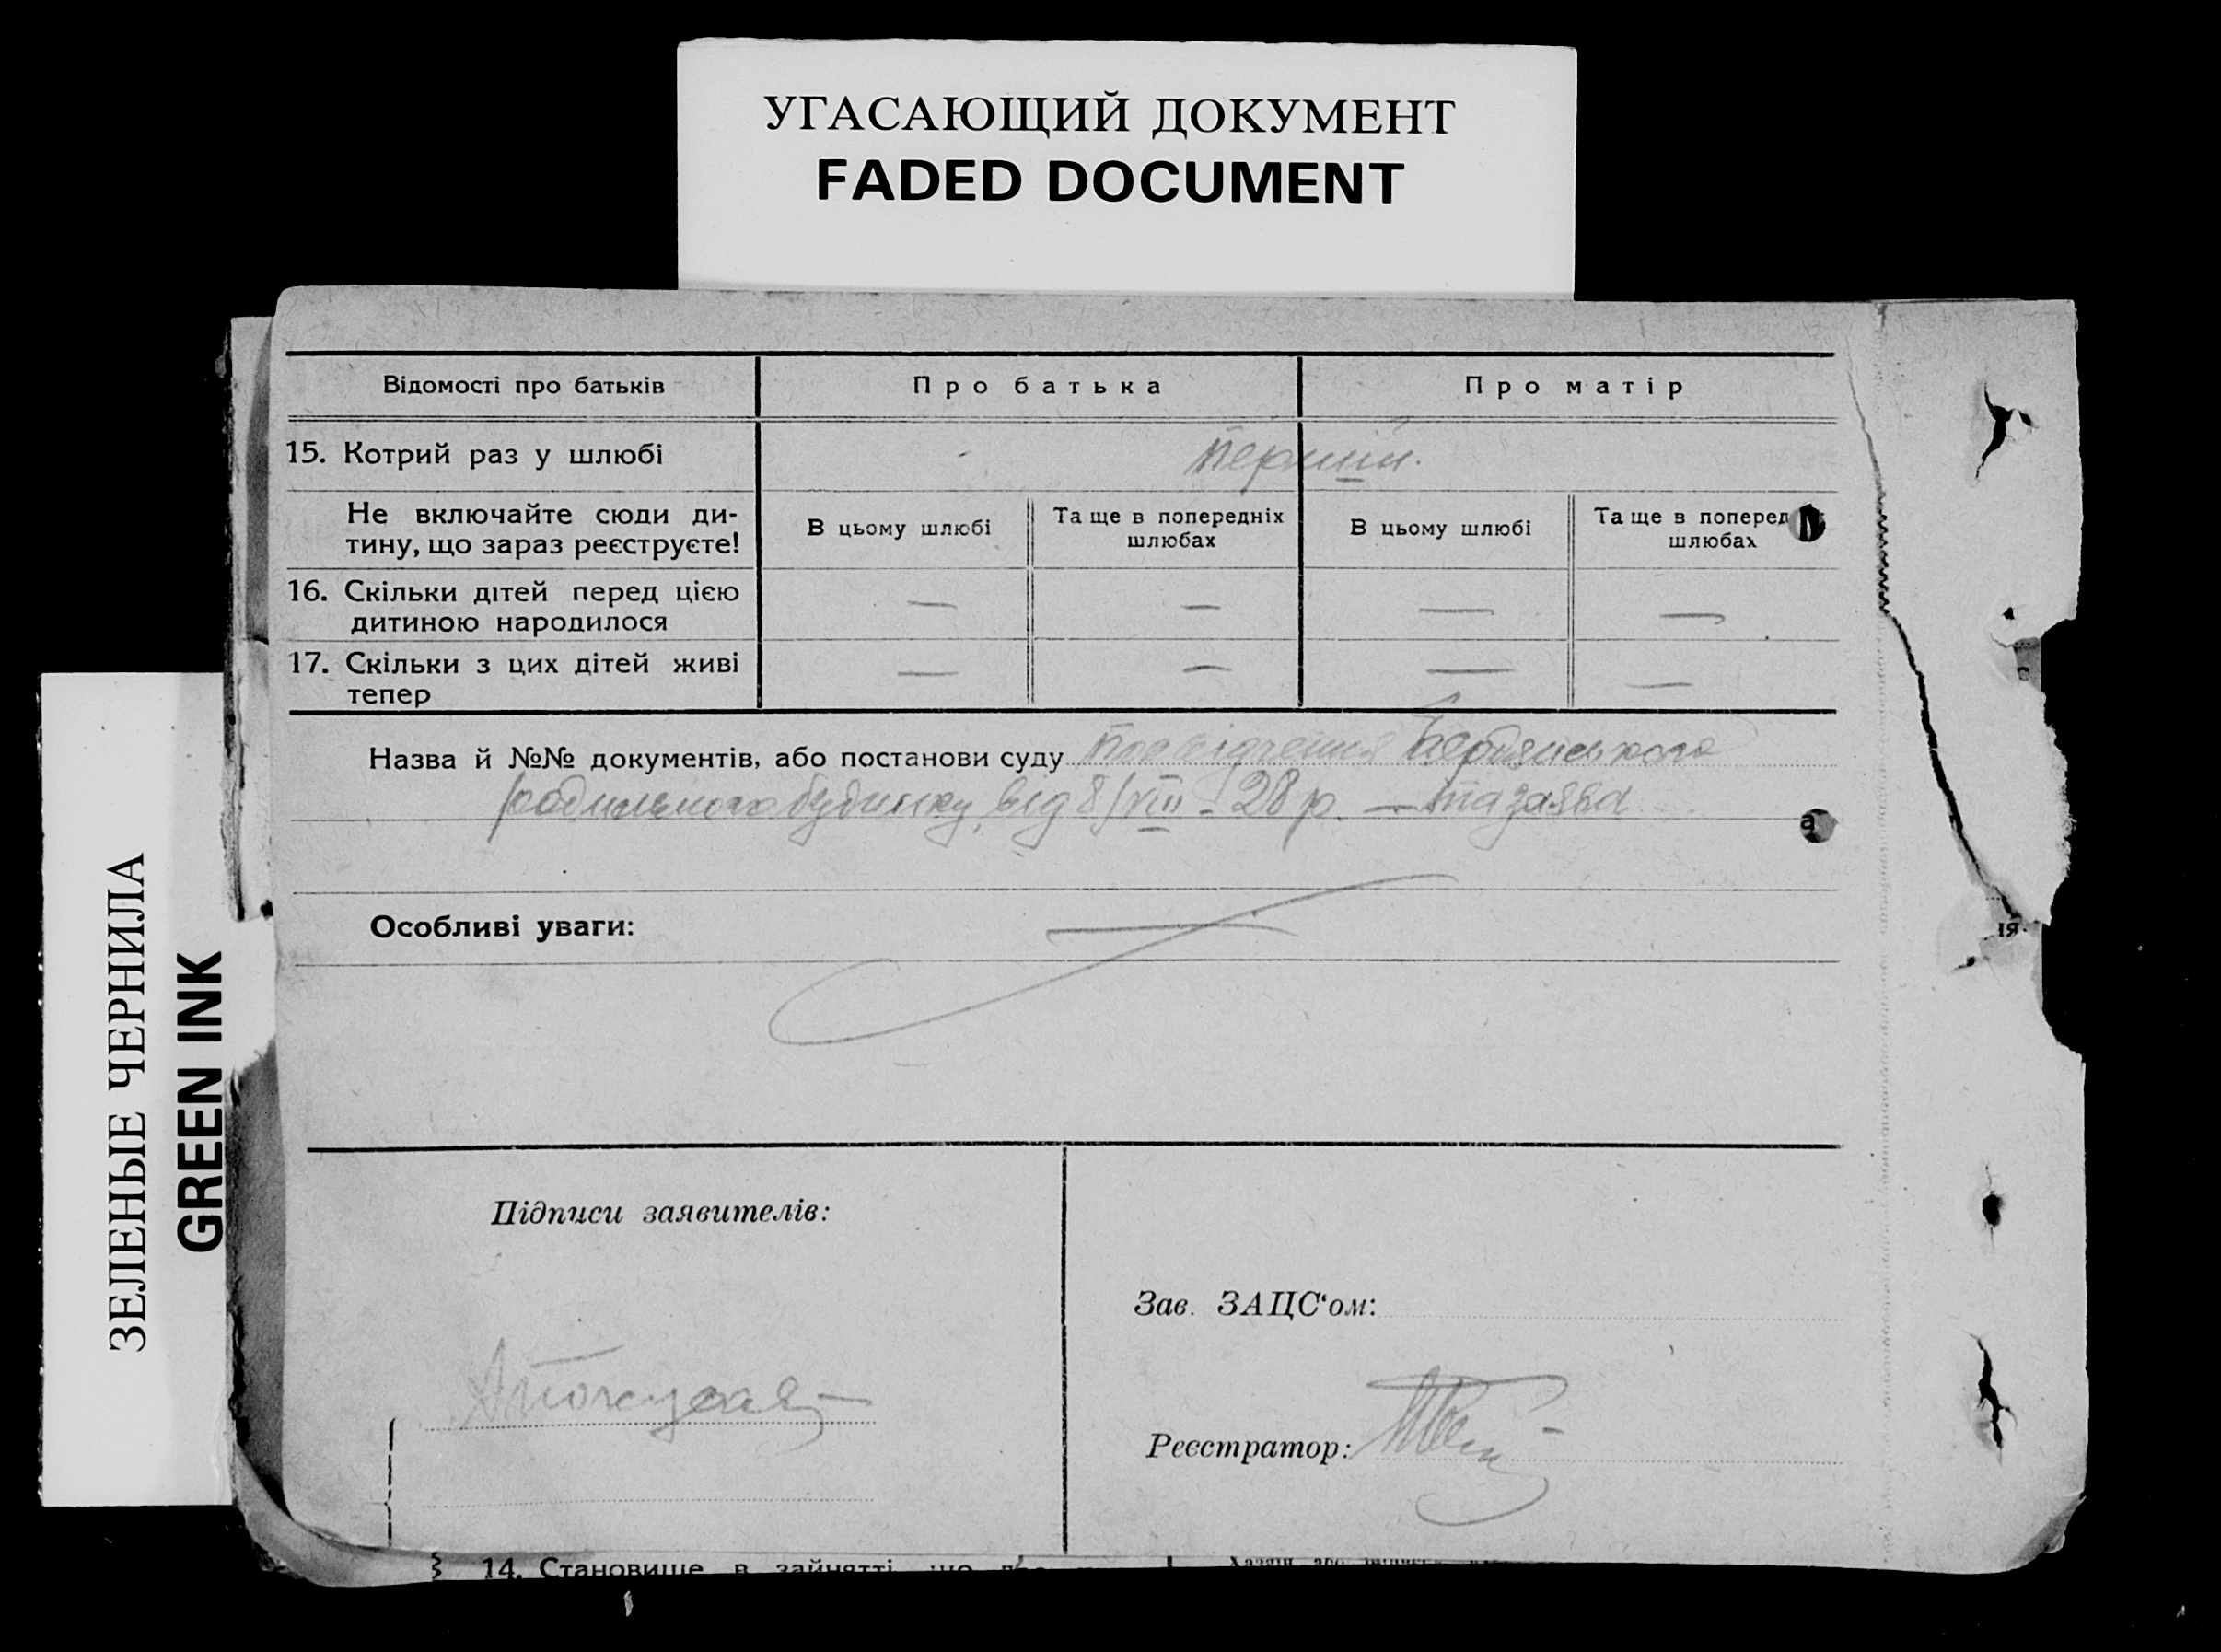 УГАСАЮЩИЙ ДОКУМЕНТ
FADED DOCUMENT
ЗЕЛЕНЫЕ ЧЕРНИЛА
GREEN INK
Відомості про батьків
Про батька
Про матір
15. Котрий раз у шлюбі
перший.
Не включайте сюди ди-
тину, що зараз реєструєте!
В цьому шлюбі
Та ще в попередніх
шлюбах
В цьому шлюбі
Та ще в поперед
шлюбах
16. Скільки дітей перед цією
дитиною народилося
— — — —
17. Скільки з цих дітей живі
тепер
— — — —
Назва й №№ документів, або постанови суду посвідчення Бердянського
родильного будинку, від 8/VIII - 28 р. — та заява
Особливі уваги: —
Підписи заявителів:
Зав. ЗАЦС‘ом:
Реєстратор:
14. Становище в зайнятті, що